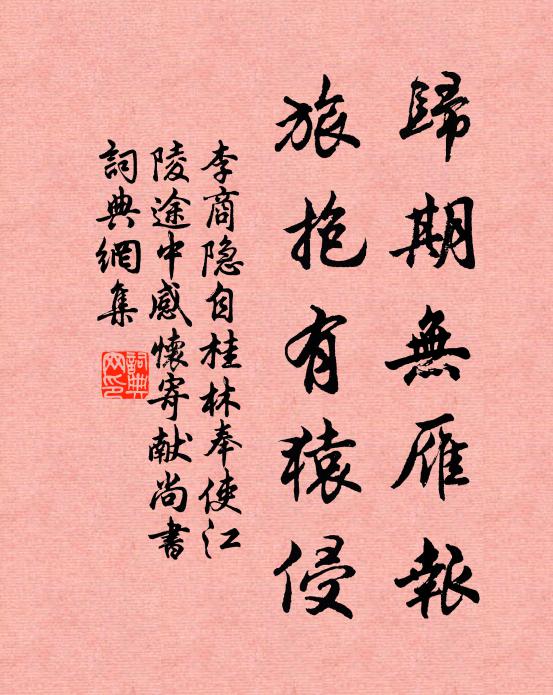 歸期無雁報
旅抱有猿侵
李商隐自桂林奉使江
陵途中感懷寄献尚書
詞典網集
詞典
网印